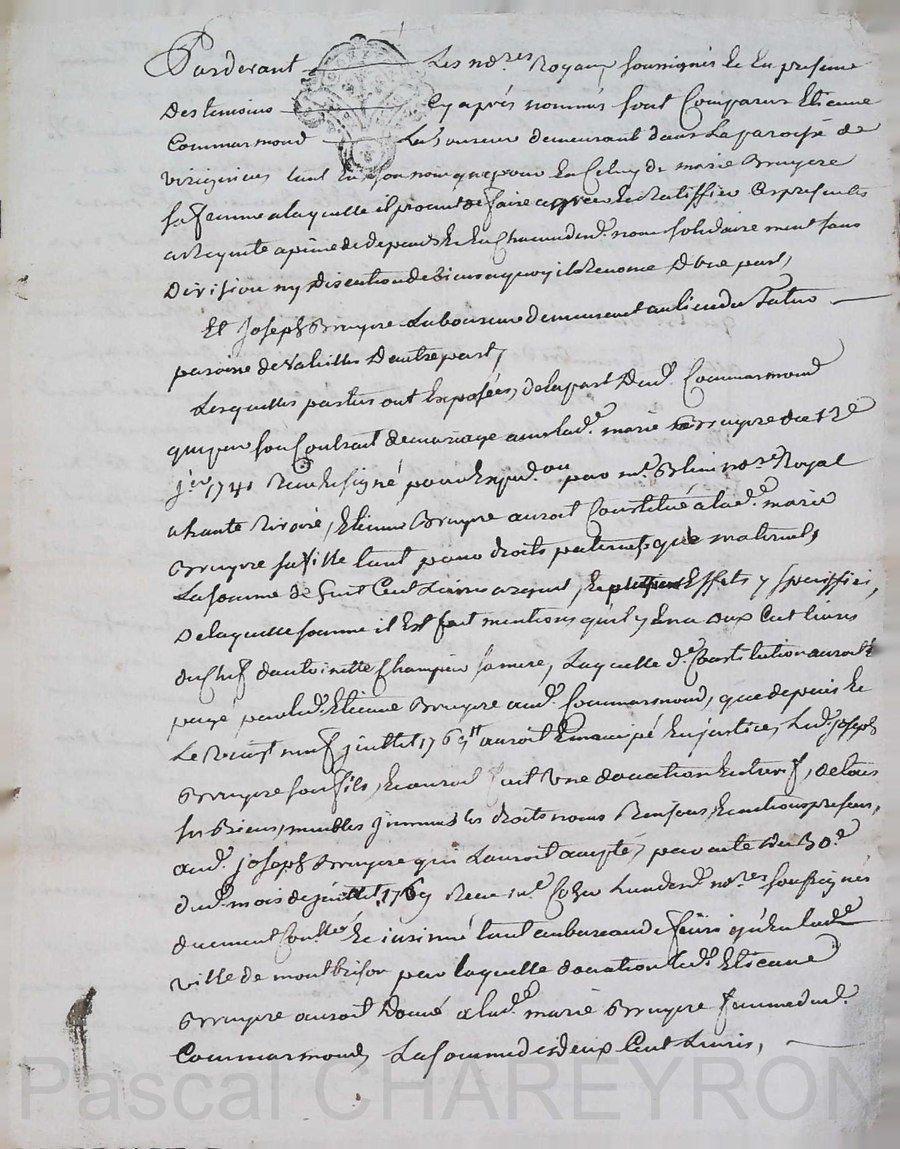 Pardevant Les no.res Royaux soussignés Et En presence
Des temoins Cy après nommés sont Comparus Etienne
Commarmond Laboureur demeurant dans La paroisse de
virigneux tant En son nom que pour En Celuy de marie Bruyere
sa femme a laquelle il promet de faire agréer Et Ratiffier Ces presentes
a Requite a peine de depends Et En Chacun desd. noms solidairement sans
Division ny Discution de biens a quoy il Renonce D'une part,
Et Joseph Bruyere Laboureur demeurant au lieu du
paroisse de Valeilles D'autre part,
Lesquelles parties ont Exposées, de la part Dud. Commarmond
que par son Contrat de mariage avec lad.e marie Bruyere du
j.er 1741 Reçu Et signé pour Expedon par m.e Blein no.re Royal
a haute Rivoire, Etienne Bruyere auroit Constitué a lad.e marie
Bruyere sa fille tant pour droits paternels que maternels
La somme de huit Cent Livres argent, Et Effets y speciffiés,
De laquelle somme il Est fait mentions quil y En a deux Cent livres
du Chef d'antoinette Champier sa mere, Laquelle d.e Constitution auroit Eté
payé par led. Etienne Bruyere aud. Commarmond, que depuis Et
Le vingt neuf juillet 1769 auroit Emancipé En justice, Led. joseph
Bruyere son fils, Et auroit fait Une donation Entre vif, de tous
ses Biens, meubles jmmeubles droits noms Raisons, Et actions presens,
aud. joseph Bruyere qui L'auroit accepté, par acte du 30.e
dud. mois de juillet 1769 Reçu m.e L'un desd. no.res soussignés
duement Con.llé Et insinué tant au bureau de feurs qu'En lad.e
ville de montbrison par laquelle donation led. Etienne
Bruyere auroit Donné a lad.e marie Bruyere femme dud.
Commarmond, La somme de deux Cent Livres,
Pascal CHAREYRON